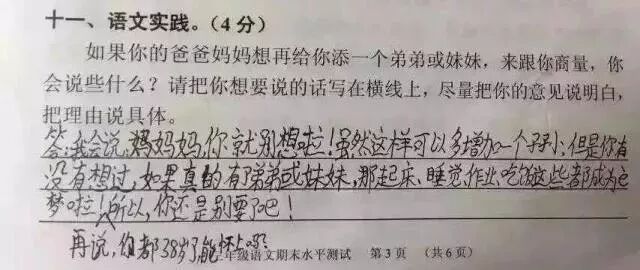 十一、语文实践。（4分）
如果你的爸爸妈妈想再给你添一个弟弟或妹妹，来跟你商量，你
会说些什么？请把你想要说的话写在横线上，尽量把你的意见说明白，
把理由说具体。
答：我会说：妈妈妈，你就别想啦！虽然这样可以多增加一个孩小，但是你有
没有想过，如果真的有弟弟或妹妹，那起床、睡觉、作业、吃饭这些都成为它
梦啦！所以，你还是别要了吧！
再说，你都38岁了能怀上吗？
年级语文期末水平测试 第3页 （共6页）